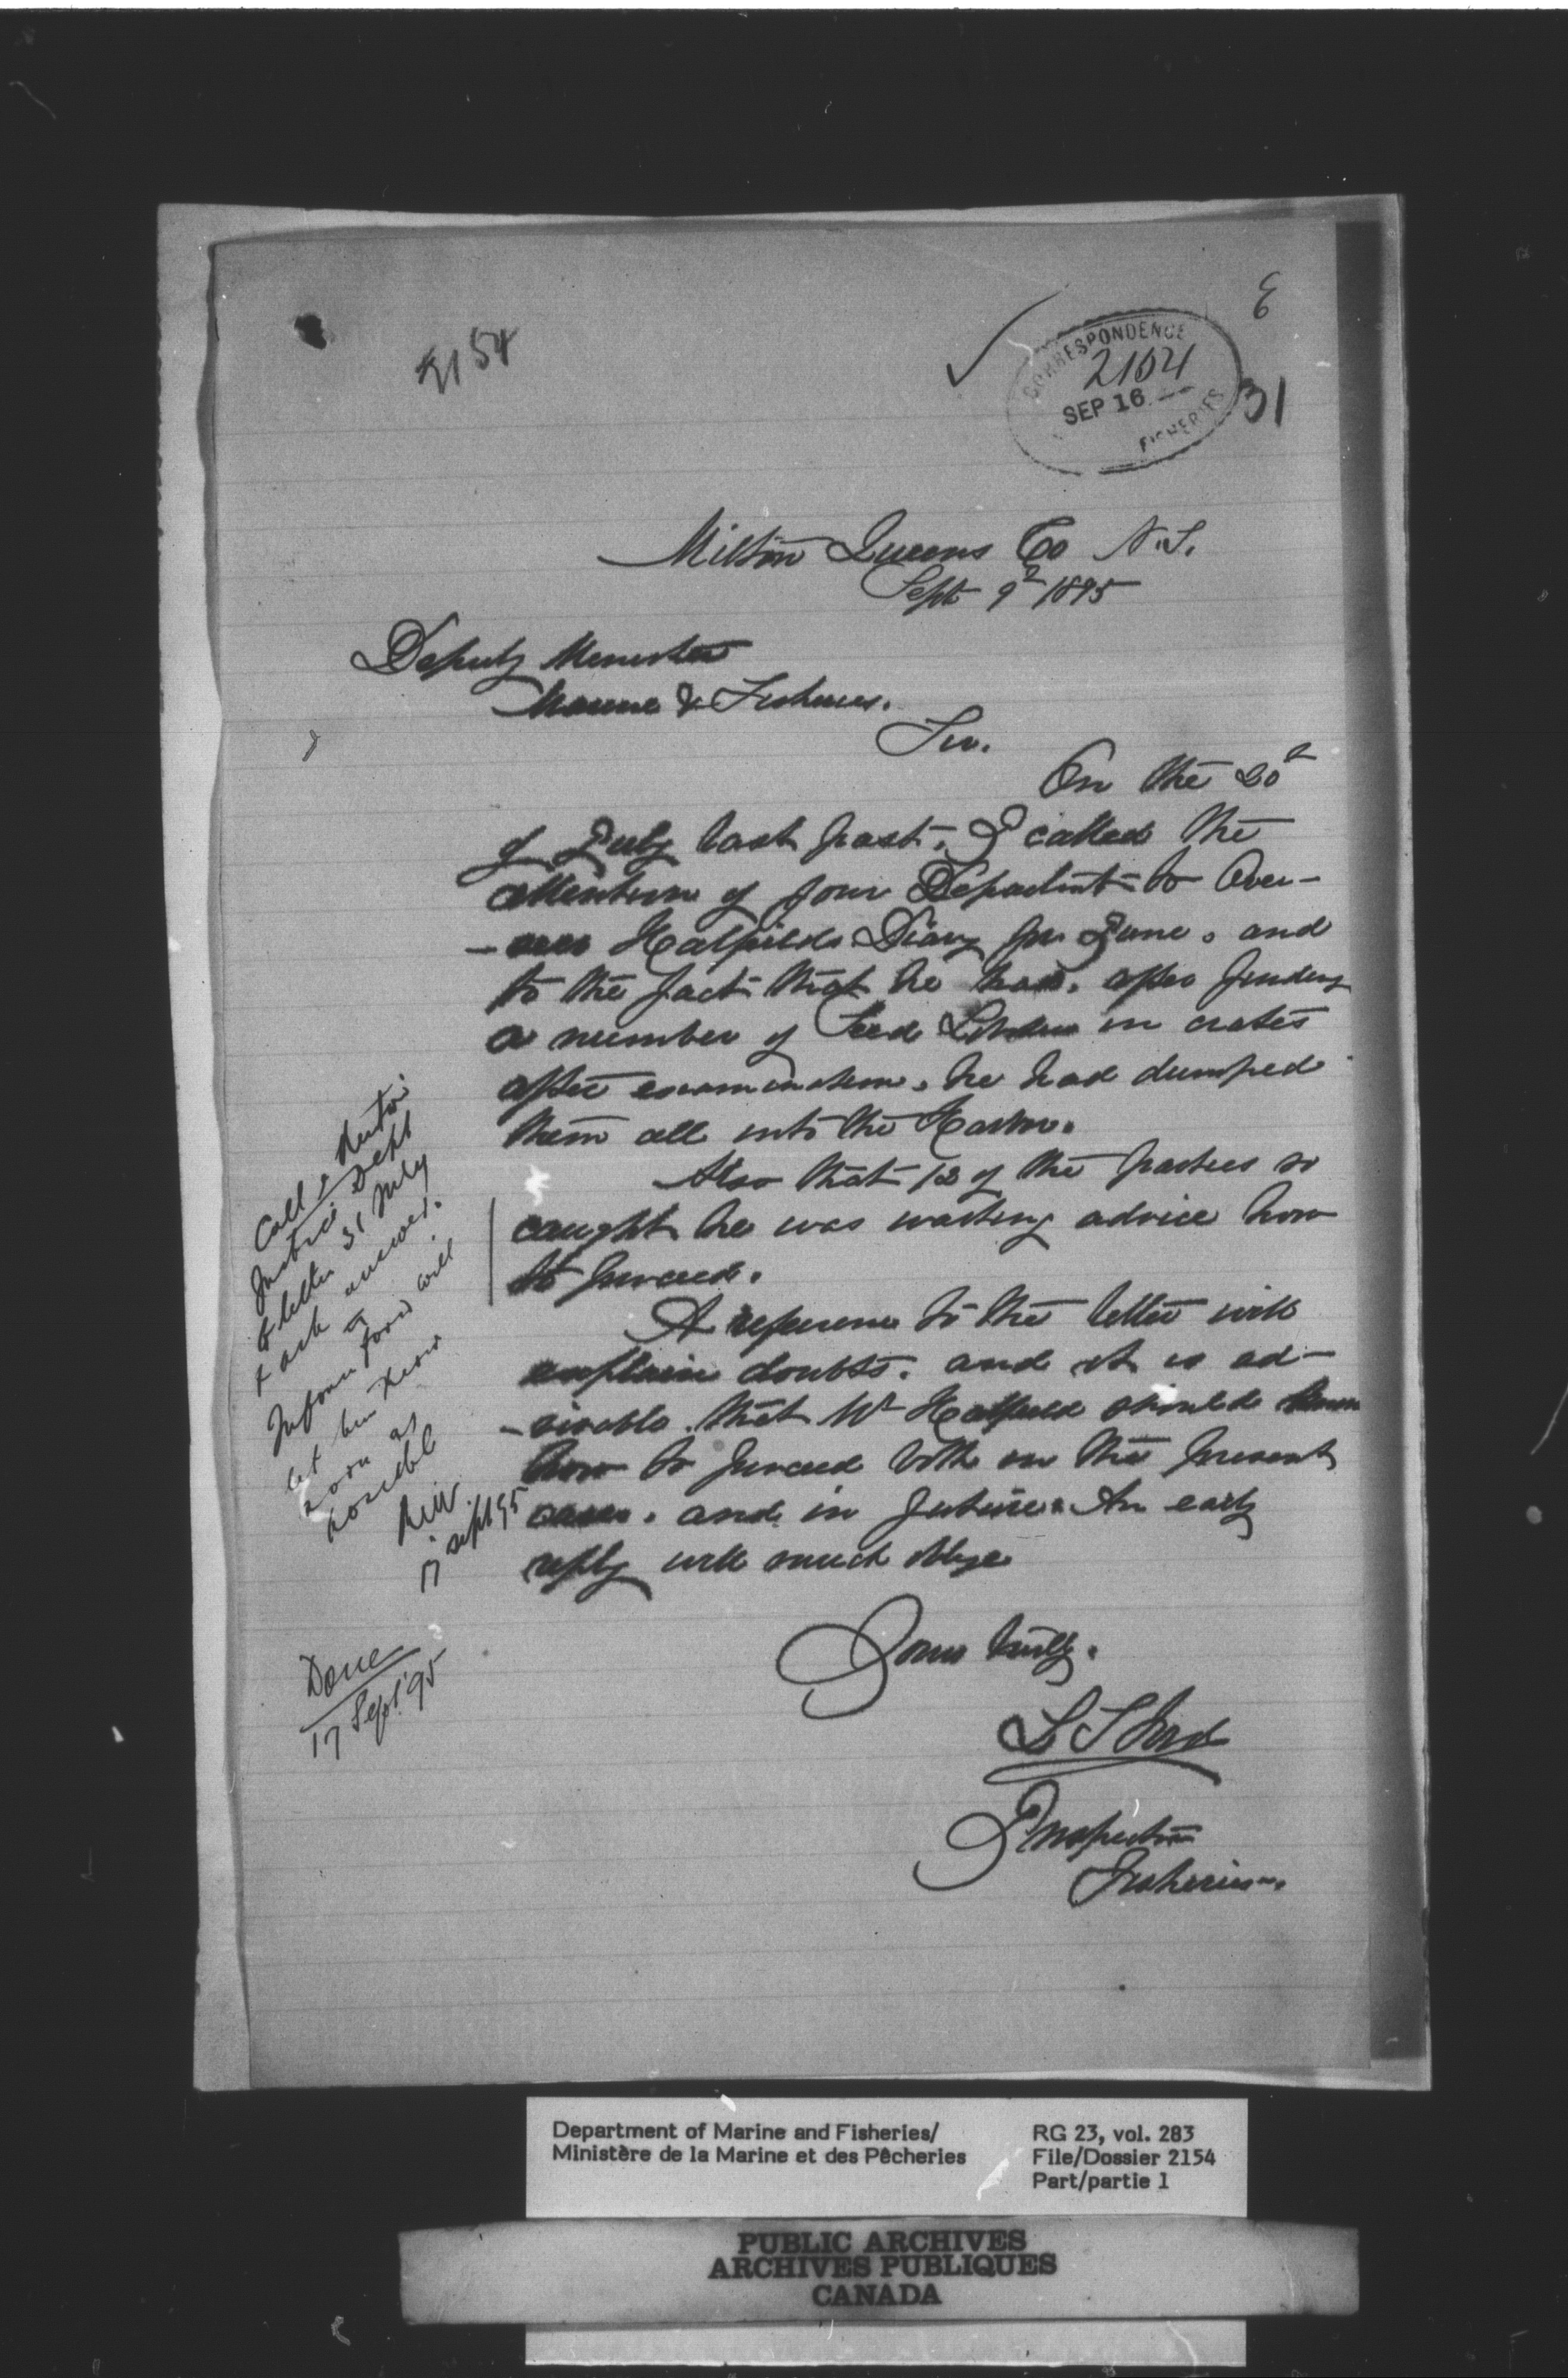 2154
CORRESPONDENCE
2154
SEP 16
FISHERIES
31
Milton Queens Co N.S.
Sept 9th 1895
Deputy Minister
Marine & Fisheries.
Sir.
On the 20th
of July last past. I called the
attention of your Department to Over-
-seer Hatfields Diary for June. and
to the fact that he had. after finding
a number of Seed Lobsters in crates
after examination. he had dumped
them all into the Harbor.
Also that 12 of the parties so
caught he was waiting advice how
to proceed.
A reference to the letter will
explain doubts. and it is ad-
-visable. that Mr Hatfield should know
how to proceed both in the present
cases. and in future. An early
reply will much oblige
Yours truly.
L S Ford
Inspector
Fisheries.
Call
Justice Dept
to letter 31 July
& ask answer.
Inform Ford will
let him know
soon as
possible
17 Sept 95
Done
17 Sept. '95
Department of Marine and Fisheries/
Ministère de la Marine et des Pêcheries
RG 23, vol. 283
File/Dossier 2154
Part/partie 1
PUBLIC ARCHIVES
ARCHIVES PUBLIQUES
CANADA